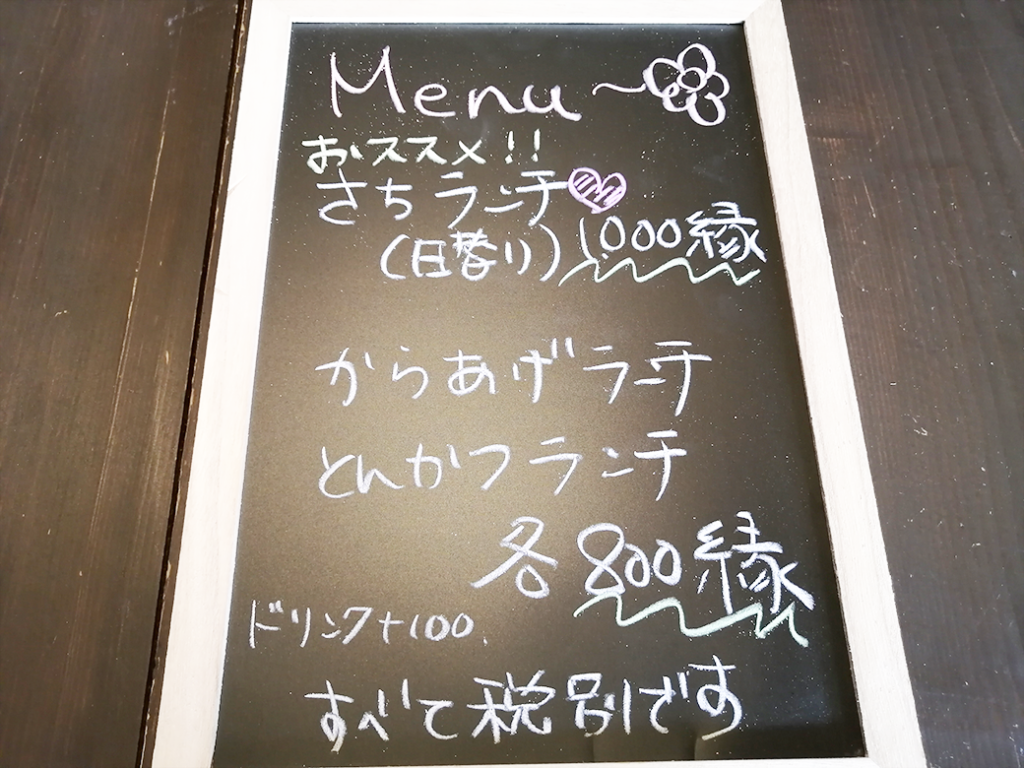 Menu
おススメ!!
さちランチ
(日替り)1,000縁
からあげランチ
とんかつランチ
各800縁
ドリンク+100.
すべて税別です